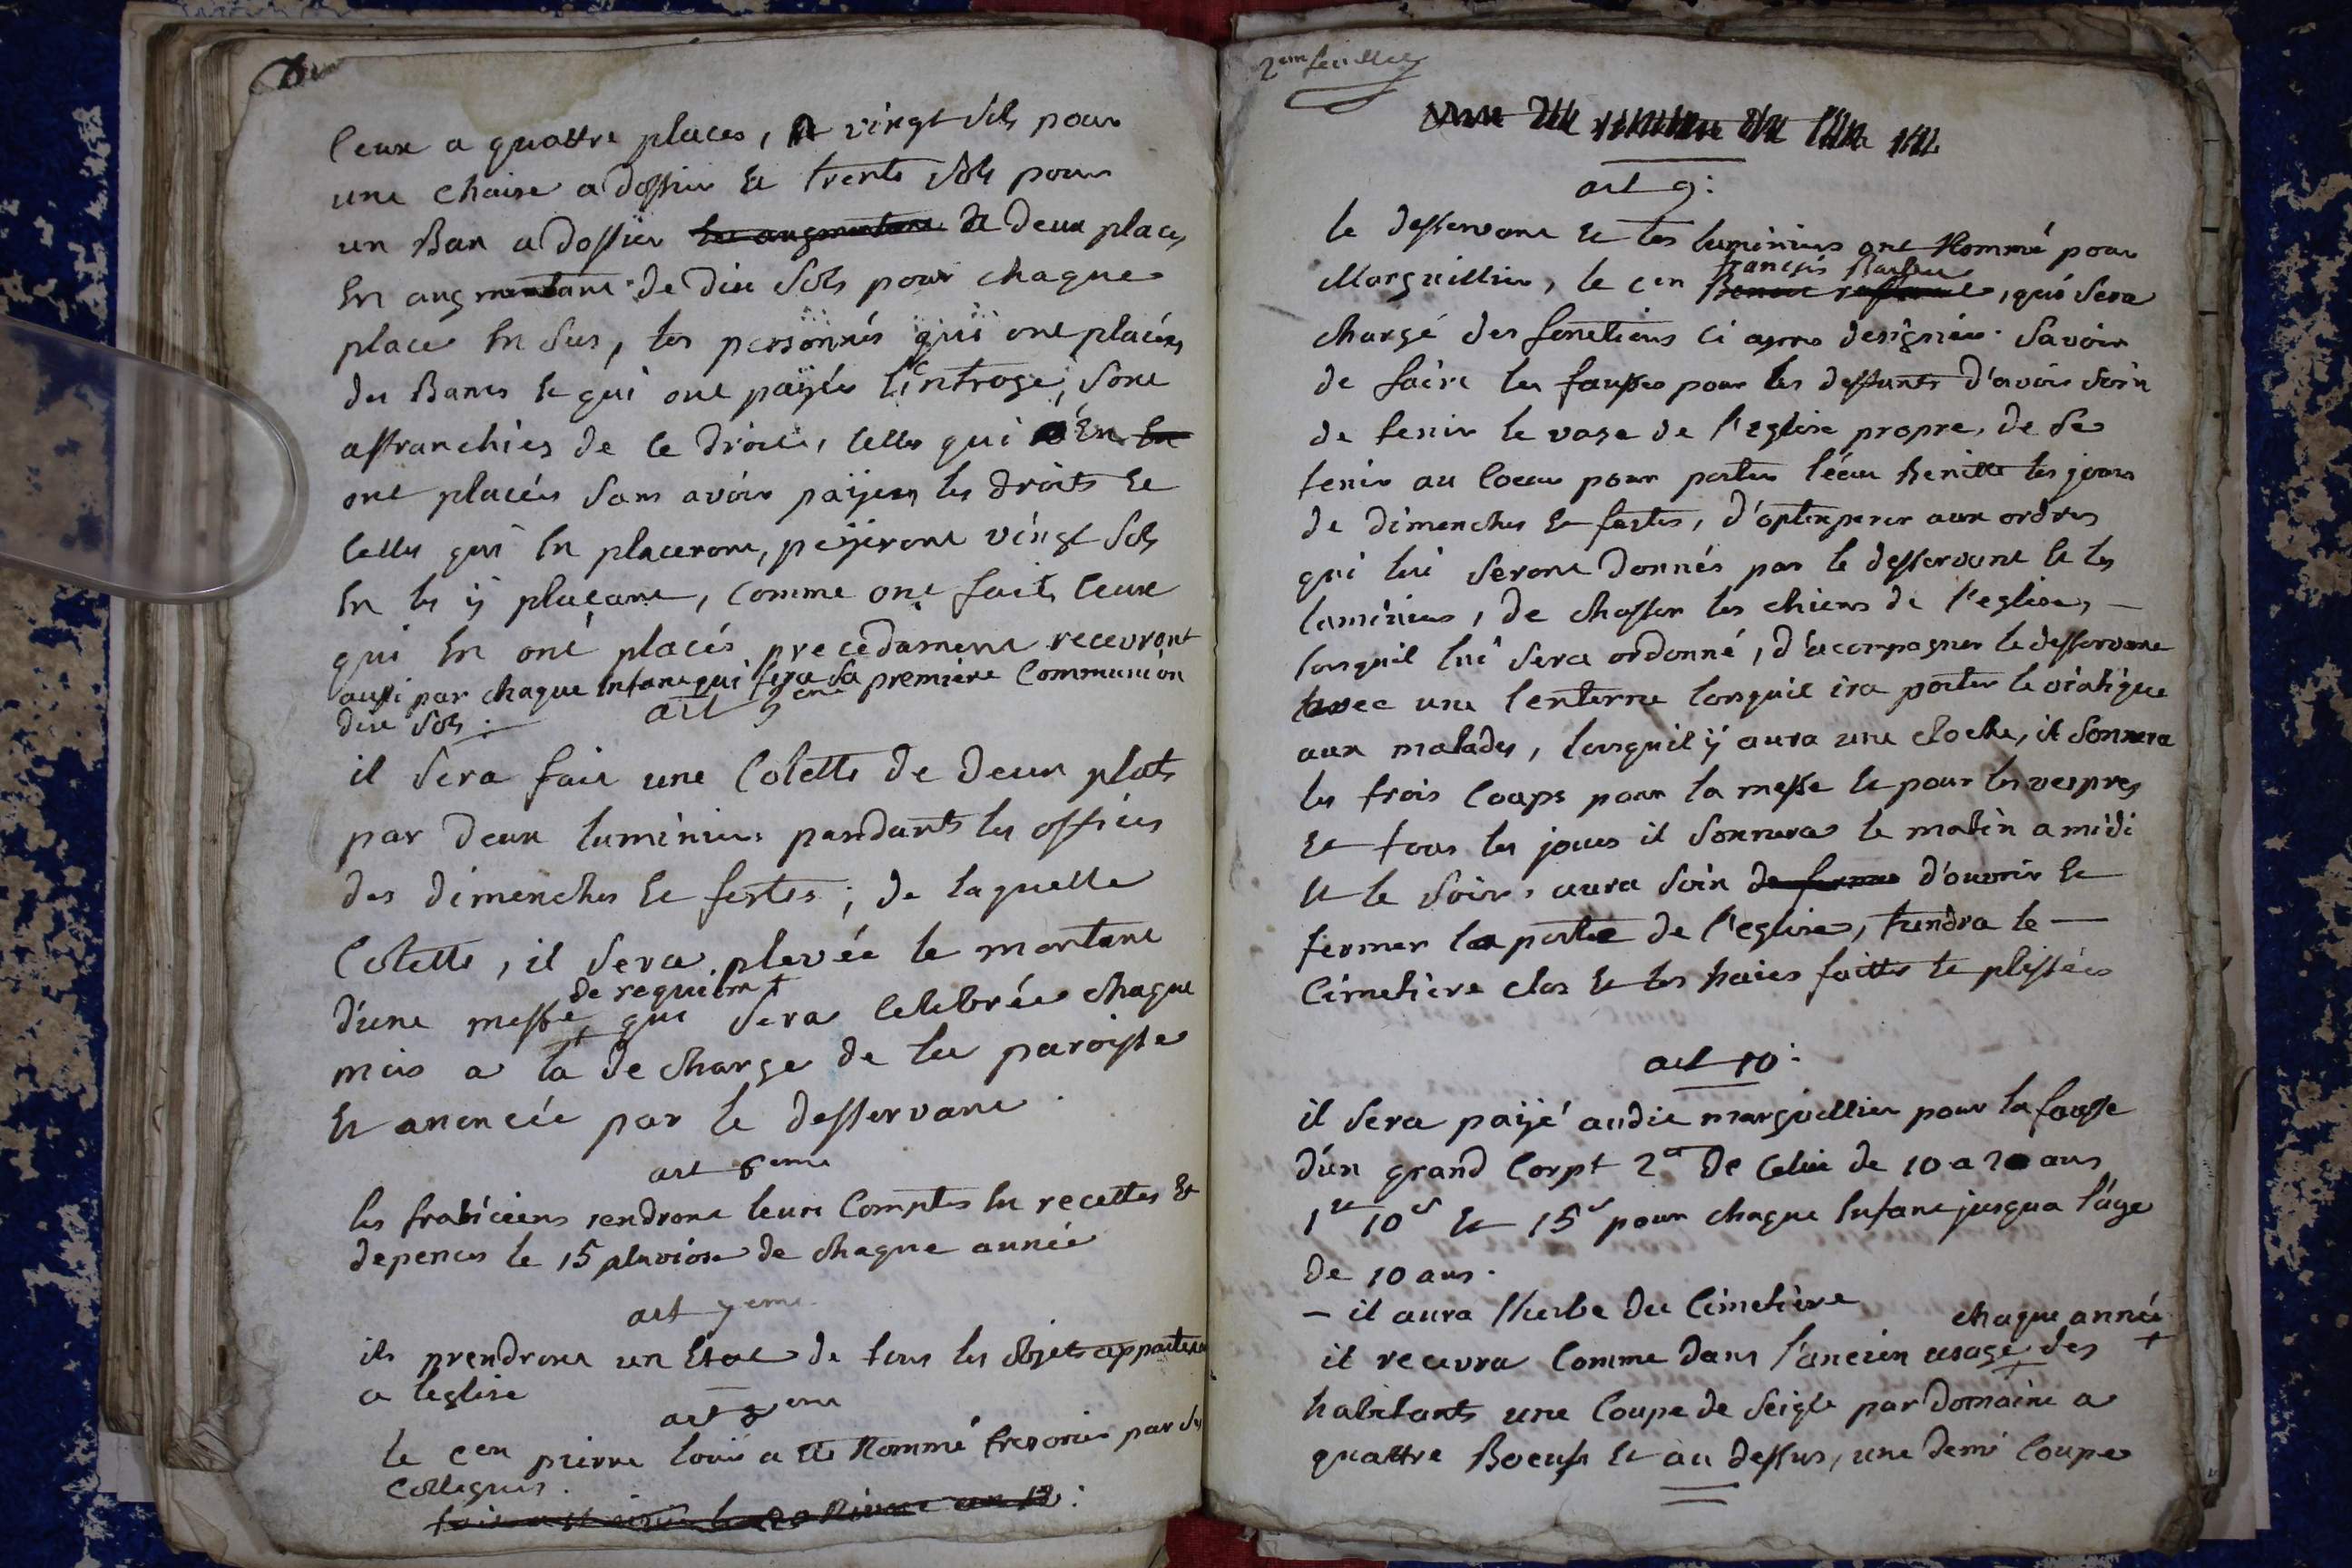 Ceux a quattre places, vingt sols pour
une chaise a dossier et trente sols pour
un Ban a dossier de deux places
En augmentant de dix sols pour chaque
place En sus, les personnes qui ont placées
des Bancs et qui ont payés l'Entrage, sont
affranchies de ce droit, celles qui En
ont placées sans avoir payer les droits et
celles qui En placeront, payeront vingt sols
En les y plaçant, comme ont faits ceux
qui En ont placés precedament recevront
aussi par chaque Enfant qui fera sa premiere Communion
dix sols
art 5eme
il sera fait une Colette de deux plats
par deux luminiers pendants les offices
des dimenches Et festes; de laquelle
Colette, il sera plevée le montant
de requiem +
d'une messe, qui sera Celebrée chaque
mois a la decharge de la paroisse
Et anoncée par le desservant.
art 6eme
les frabiciens rendront leurs Comptes En recettes Et
depences le 15 pluviose de chaque année
art 7eme
ils prendront un Etat de tous les objets appartena
a l'eglise
art 8eme
le cen pierre louis a été Nommé tresorier par ses
Collegues.
2em feuillet
art 9:
le desservant Et les luminiers ont Nommé pour
francois
Marguillier, le cen , qui sera
chargé des fonctions ci apres designées. Savoir
de faire les fausses pour les deffunts d'avoir soin
de tenir le vase de l'eglise propre, de se
tenir au Coeur pour porter l'éau benitte les jours
de dimenches Et festes, d'optemperer aux ordres
qui lui seront donnés par le desservant Et les
luminiers, de chasser les chiens de l'eglise, —
lorsquil lui sera ordonné, d'acompagner le desservant
avec une lenterne lorsquil ira porter le viatique
aux malades, lorsquil y aura une cloche, il sonnera
les trois Coups pour la messe Et pour les vespres
Et tous les jours il sonnera le matin a midi
Et le soir, aura soin d'ouvrir Et
fermer la porte de l'eglise, tiendra le —
Cimetiere clos Et les haies faittes Et plessées
art 10:
il sera payé audit marguellier pour la fausse
d'un grand Corpt 2tt de celui de 10 a 20 ans
1tt 10s Et 15s pour chaque Enfant jusqua l'age
de 10 ans.
— il aura l'herbe du Cimetiere
chaque année +
il recevra Comme dans l'ancien usage des
habitants une Coupe de seigle par domaine a
quattre Boeufs Et au dessus, une demi Coupe